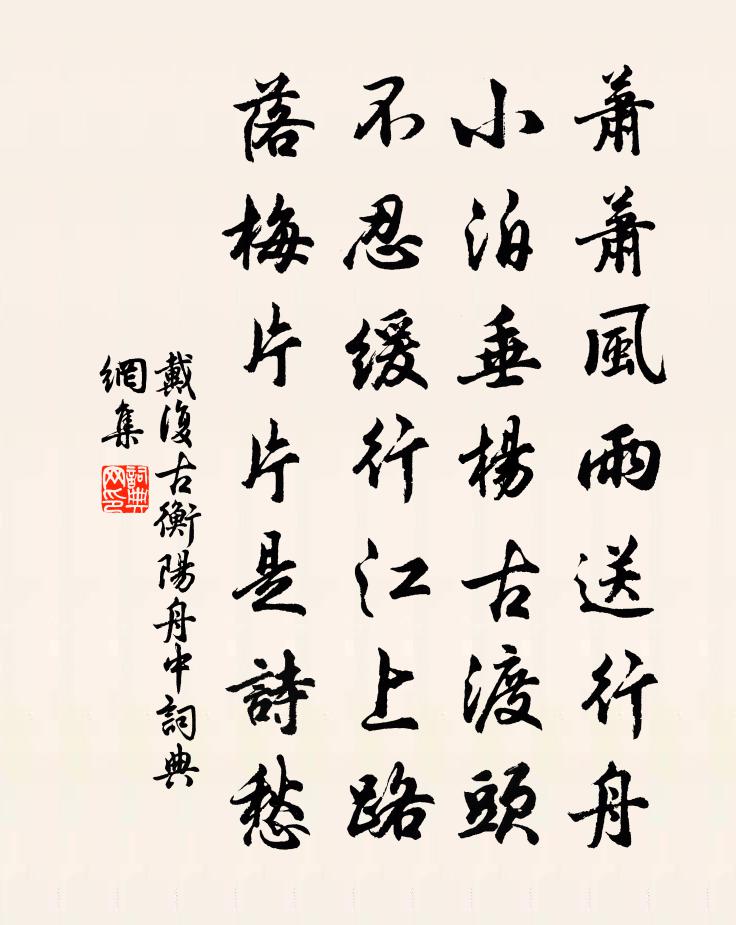 蕭蕭風雨送行舟
小泊垂楊古渡頭
不忍緩行江上路
落梅片片是詩愁
戴復古衡陽舟中詞典
網集
詞典
网印